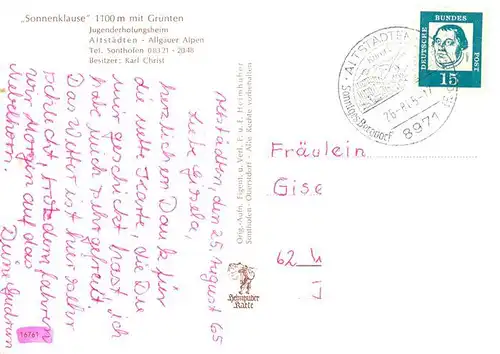 „Sonnenklause" 1100 m mit Grünten
Jugenderholungsheim
Altstädten - Allgäuer Alpen
Tel. Sonthofen 08321 - 2048
Besitzer: Karl Christ
Altstädten, den 25 August 65
Liebe Gisela,
herzlichen Dank für
die nette Karte, die Du
mir geschickt hast ich
habe mich sehr gefreut
Das Wetter ist hier sehr
schlecht, trotzdem fahren
wir Morgen auf das
Nebelhorn.
Deine Gudrun
Orig.-Aufn. Eigent. u. Verl. F. u. E. Heimhuber
Sonthofen - Oberstdorf - Alle Rechte vorbehalten
Heimhuber
Karte
16761
ALTSTÄDTEN
26.-8.65.-17
8971
DEUTSCHE BUNDESPOST
15
Fräulein
Gise
62 W